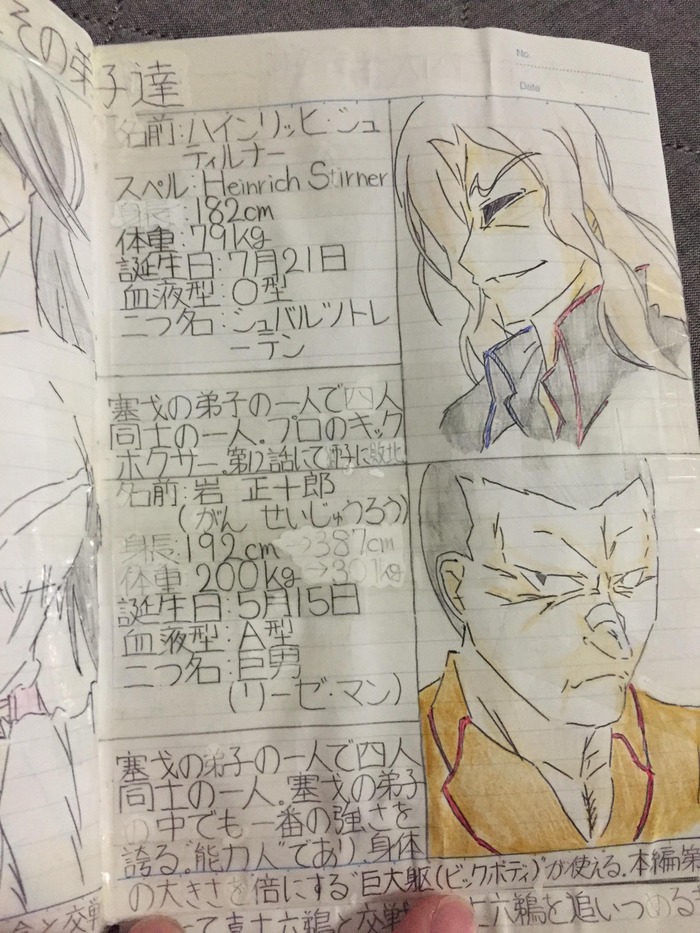 その弟子達
No.
Date
名前:ハインリッヒ・シュ
ティルナー
スペル:Heinrich Stirner
身長:182cm
体重:79kg
誕生日:7月21日
血液型:O型
二つ名:シュバルツノトレ
ーテン
塞戈の弟子の一人で四人
同士の一人。プロのキック
ボクサー。第12話にて
に敗北
名前:岩 正十郎
(がん せいじゅうろう)
身長:192cm→387cm
体重:200kg→301kg
誕生日:5月15日
血液型:A型
二つ名:巨男
(リーゼ・マン)
塞戈の弟子の一人で四人
同士の一人。塞戈の弟子
の中でも一番の強さを
誇る。"能力人"であり、身体
の大きさを倍にする"巨大躯(ビックボディ)"が使える。本編第
て真十六鵺と交戦
十六鵺を追いつめる